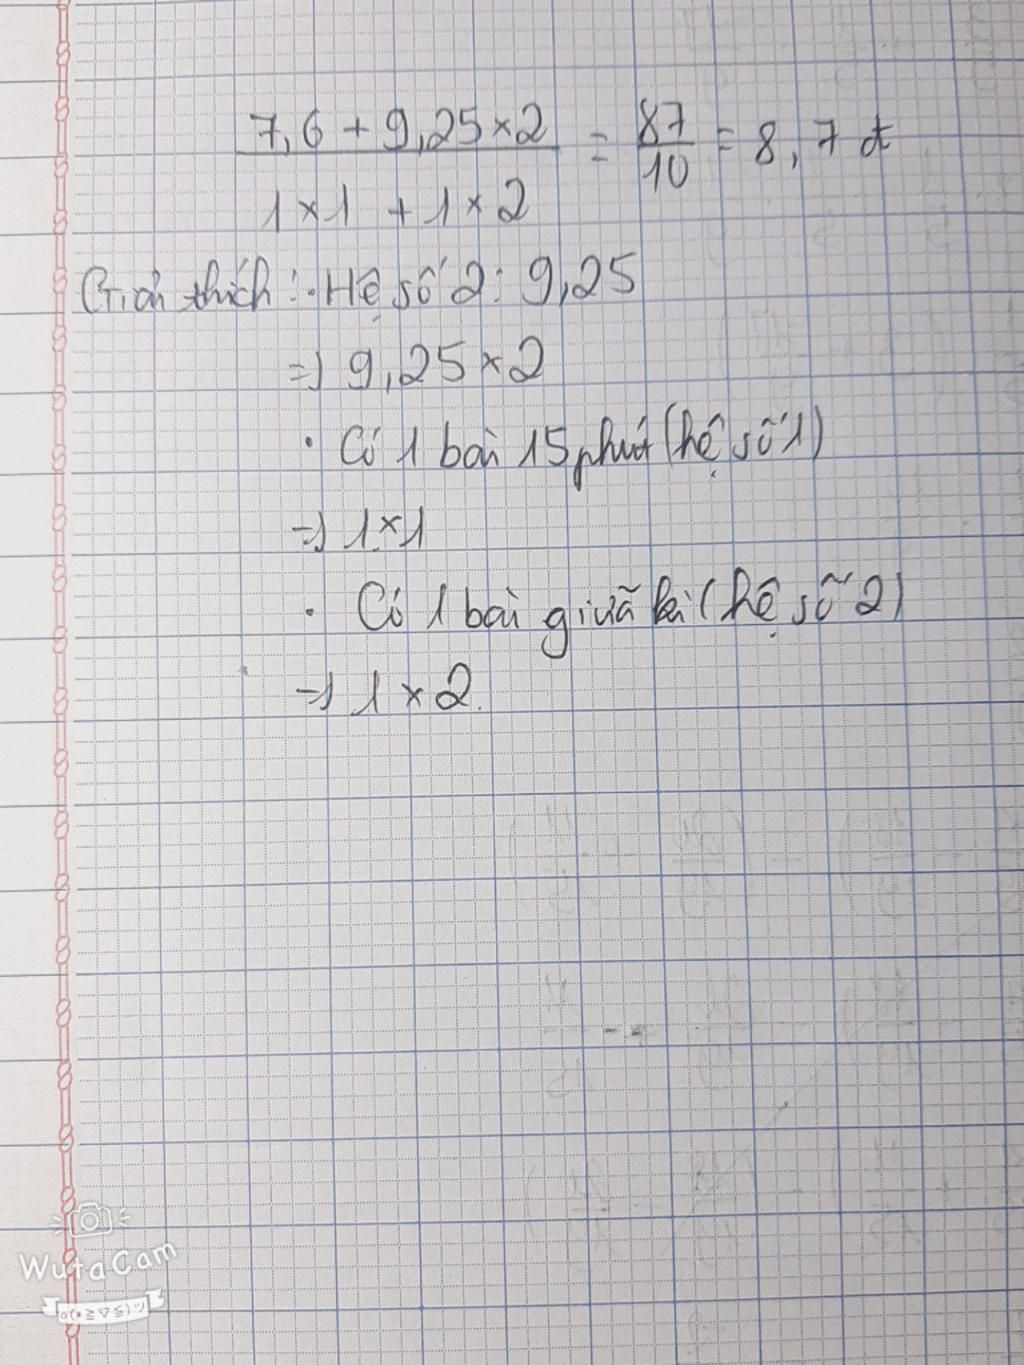 7,6 + 9,25 × 2 / 1 × 1 + 1 × 2 = 87/10 = 8,7 đ
Giải thích : · Hệ số 2 : 9,25
=> 9,25 × 2
· Có 1 bài 15 phút (hệ số 1)
=> 1 × 1
· Có 1 bài giữa kì (hệ số 2)
=> 1 × 2.
WutaCam